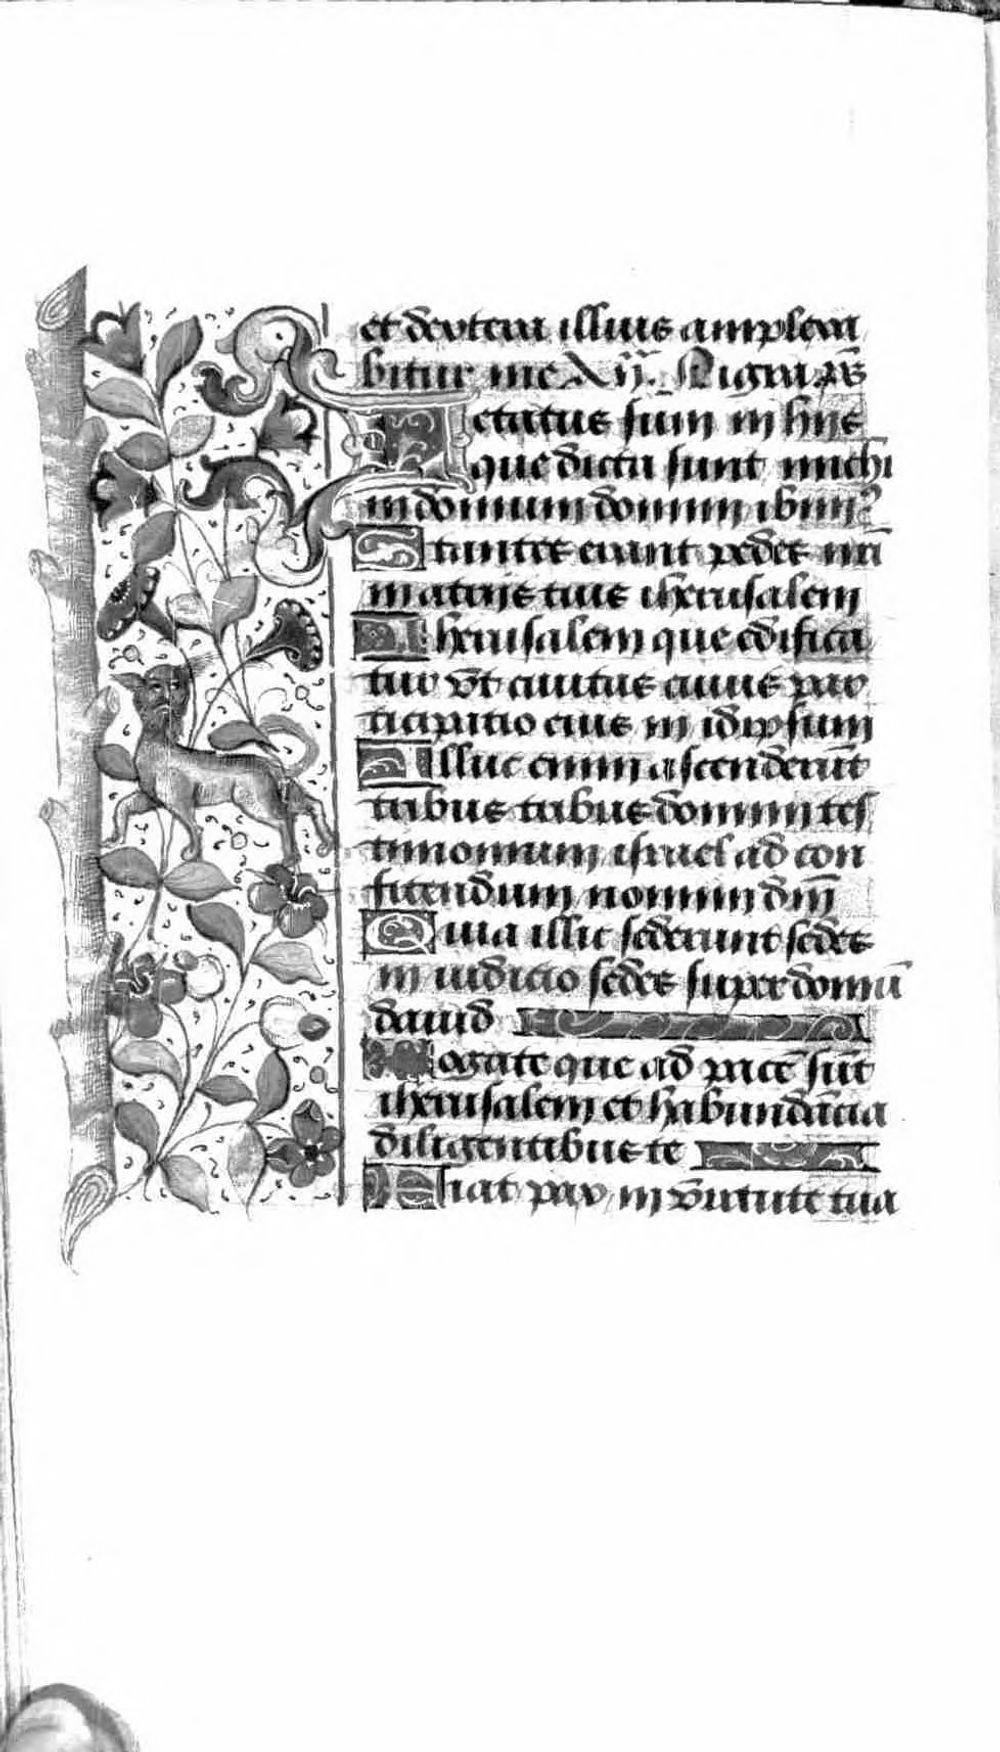 et dextera illius amplexa
bitur me Xpi. Nigra ps
Letatus sum in hiis
que dicta sunt michi
in domum domini ibimꝰ
Stantes erant pedes nr̄i
in atriis tuis iherusalem
Iherusalem que edifica
tur vt ciuitas cuius par
ticipatio eius in idipsum
Illuc enim ascenderūt
tribus tribus domini tes
timonium israel ad con
fitendum nomini dn̄i
Quia illic sederunt sedes
in iudicio sedes super domū
dauid
Rogate que ad pacē sūt
iherusalem et habundācia
diligentibus te
Fiat pax in v̄tute tua